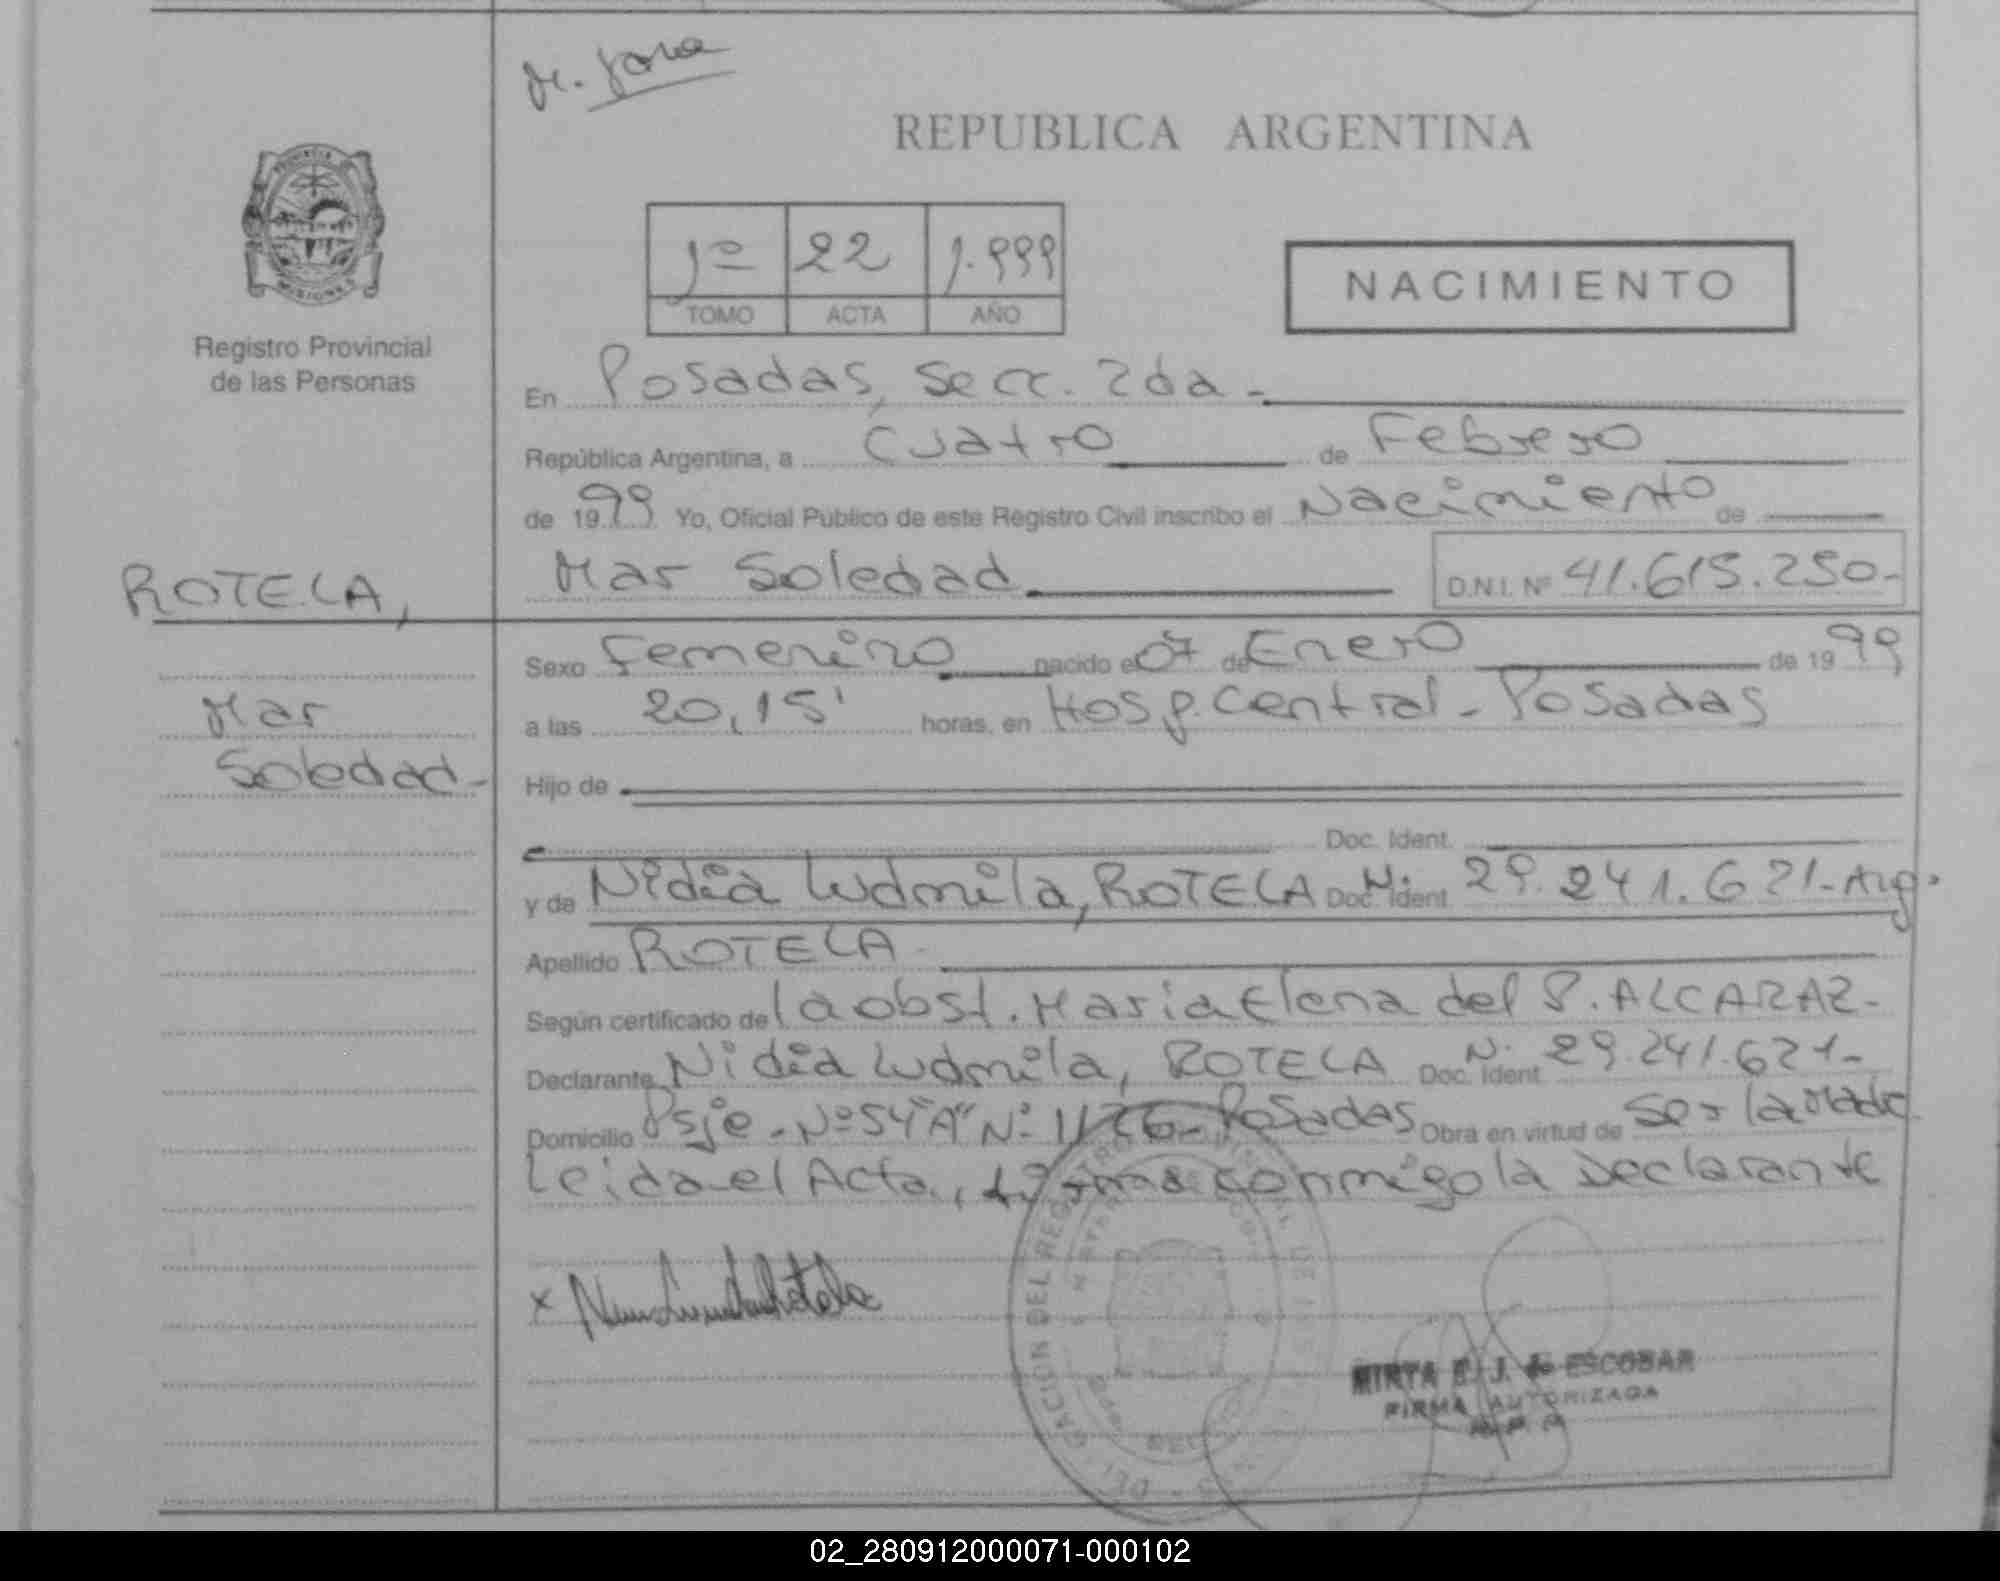 REPUBLICA ARGENTINA
PROVINCIA
MISIONES
Registro Provincial
de las Personas
1º 22 1.999
TOMO ACTA AÑO
NACIMIENTO
En Posadas, Secc. 2da -
República Argentina, a Cuatro de Febrero
de 1999 Yo, Oficial Público de este Registro Civil inscribo el Nacimiento de
ROTELA, Mar Soledad D.N.I. Nº 41.615.250-
Sexo Femenino nacido el 07 de Enero de 1999
Mar
a las 20,15' horas, en Hosp. Central - Posadas
Soledad -
Hijo de
Doc. Ident.
y de Nidia Ludmila, ROTELA Doc. Ident. N. 29.241.621- Arg.
Apellido ROTELA -
Según certificado de la obst. Maria Elena del S. ALCARAZ-
Declarante Nidia Ludmila, ROTELA Doc. Ident. N. 29.241.621-
Domicilio Psje - Nº 54 "A" Nº 1126 - Posadas Obra en virtud de ser la Madre
Leida el Acta, firma conmigo la Declarante
x
MIRTA E. J. de ESCOBAR
FIRMA AUTORIZADA
02_280912000071-000102